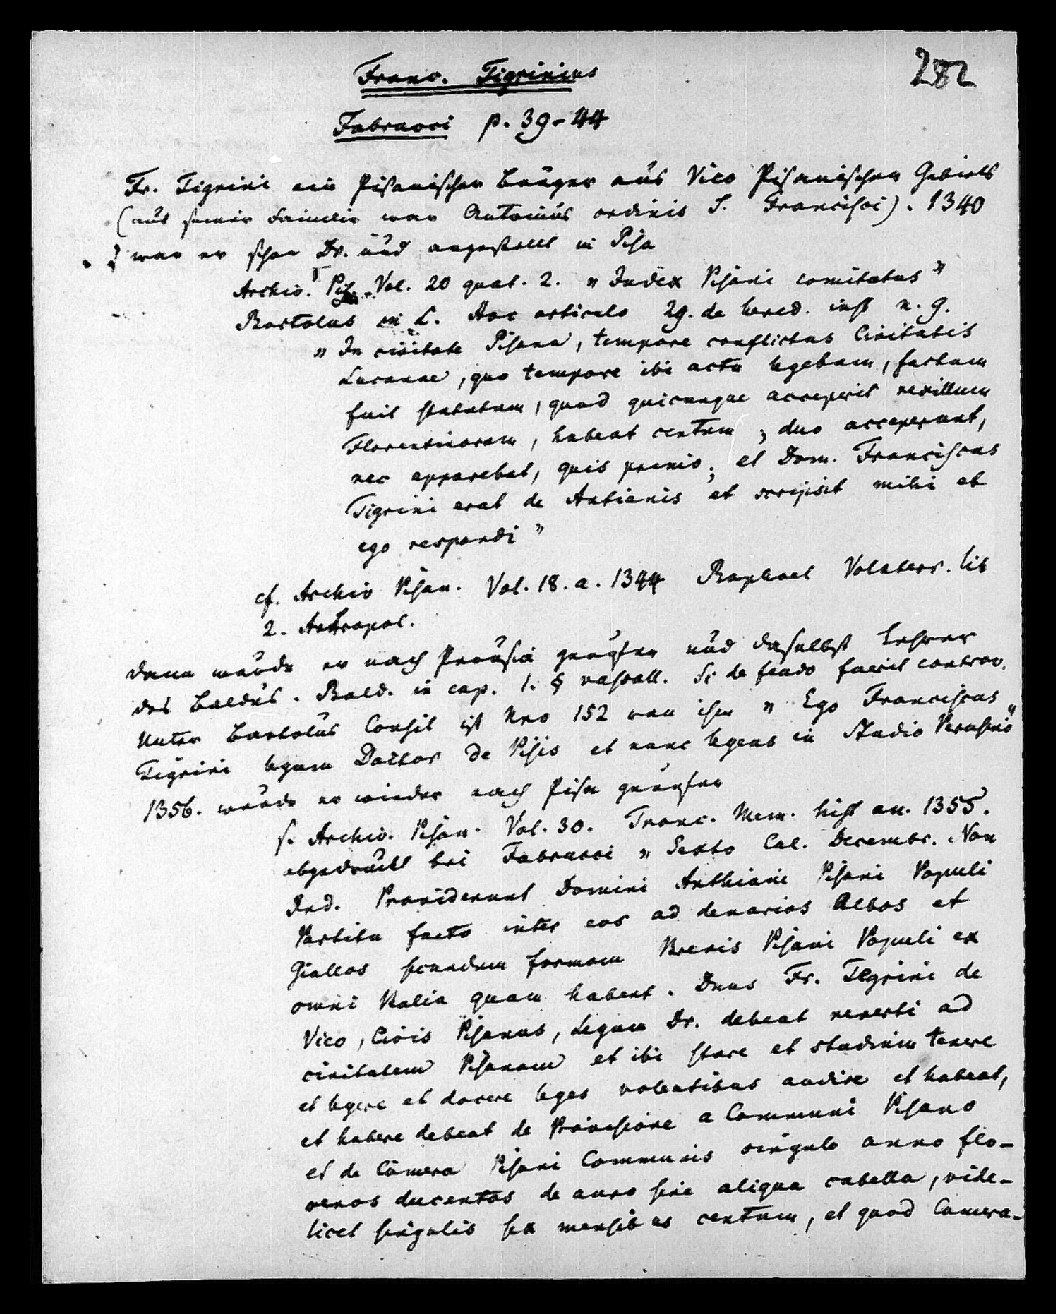 282
Franc. Tigrinius
Fabrucci p. 39-44
Fr. Tigrini ein Pisanischer Bürger aus Vico Pisanischen Gebiets
(aus seiner Familie war Antonius ordinis S. Francisci). 1340
war er schon Dr. und angestellt in Pisa
Archiv. Pis. Vol. 20 quat. 2. "Index Pisani comitatus"
Bartolus in L. Hac articulo 29. de hered. inst n. 9.
"In civitate Pisana, tempore conflictus Civitatis
Lucanae, quo tempore ibi actu legebam, factum
fuit statutum, quod quicunque acceperit vexillum
Florentinorum, habeat centum; duo acceperunt,
nec apparebat, quis primo; et Dom. Franciscus
Tigrini erat de Antianis et scripsit mihi et
ego respondi"
cf. Archiv Pisan. Vol. 18. a. 1344 Raphael Volaterr. lib
2. Antropol.
dann wurde er nach Perusia gerufen und daselbst Lehrer
des Baldus. Bald. in cap. 1. § vasall. Si de feudo fuerit controv.
Unter Bartolus Consil ist Nro 152 von ihm "Ego Franciscus
Tigrini legum Doctor de Pisis et nunc legens in Studio Perusino"
1356. wurde er wieder nach Pisa gerufen
s. Archiv. Pisan. Vol. 30. Tronc. Mem. hist an. 1355.
abgedruckt bei Fabrucci "Sexto Cal. Decembr. Non
Ind. Providerunt Domini Anthiani Pisani Populi
Partitu facto inter eos ad denarios Albos et
Giallos secundum formam Brevis Pisani Populi ex
omni Balia quam habent. Dnus Fr. Tegrini de
Vico, Civis Pisanus, Legum Dr. debeat reverti ad
civitatem Pisanam et ibi stare et studium tenere
et legere et docere leges volentibus audire et habeat,
et habere debeat de Provisione a Communi Pisano
et de Camera Pisani Communis singulo anno flo-
renos ducentos de auro sine aliqua cabella, vide-
licet singulis sex mensibus centum, et quod Camera-